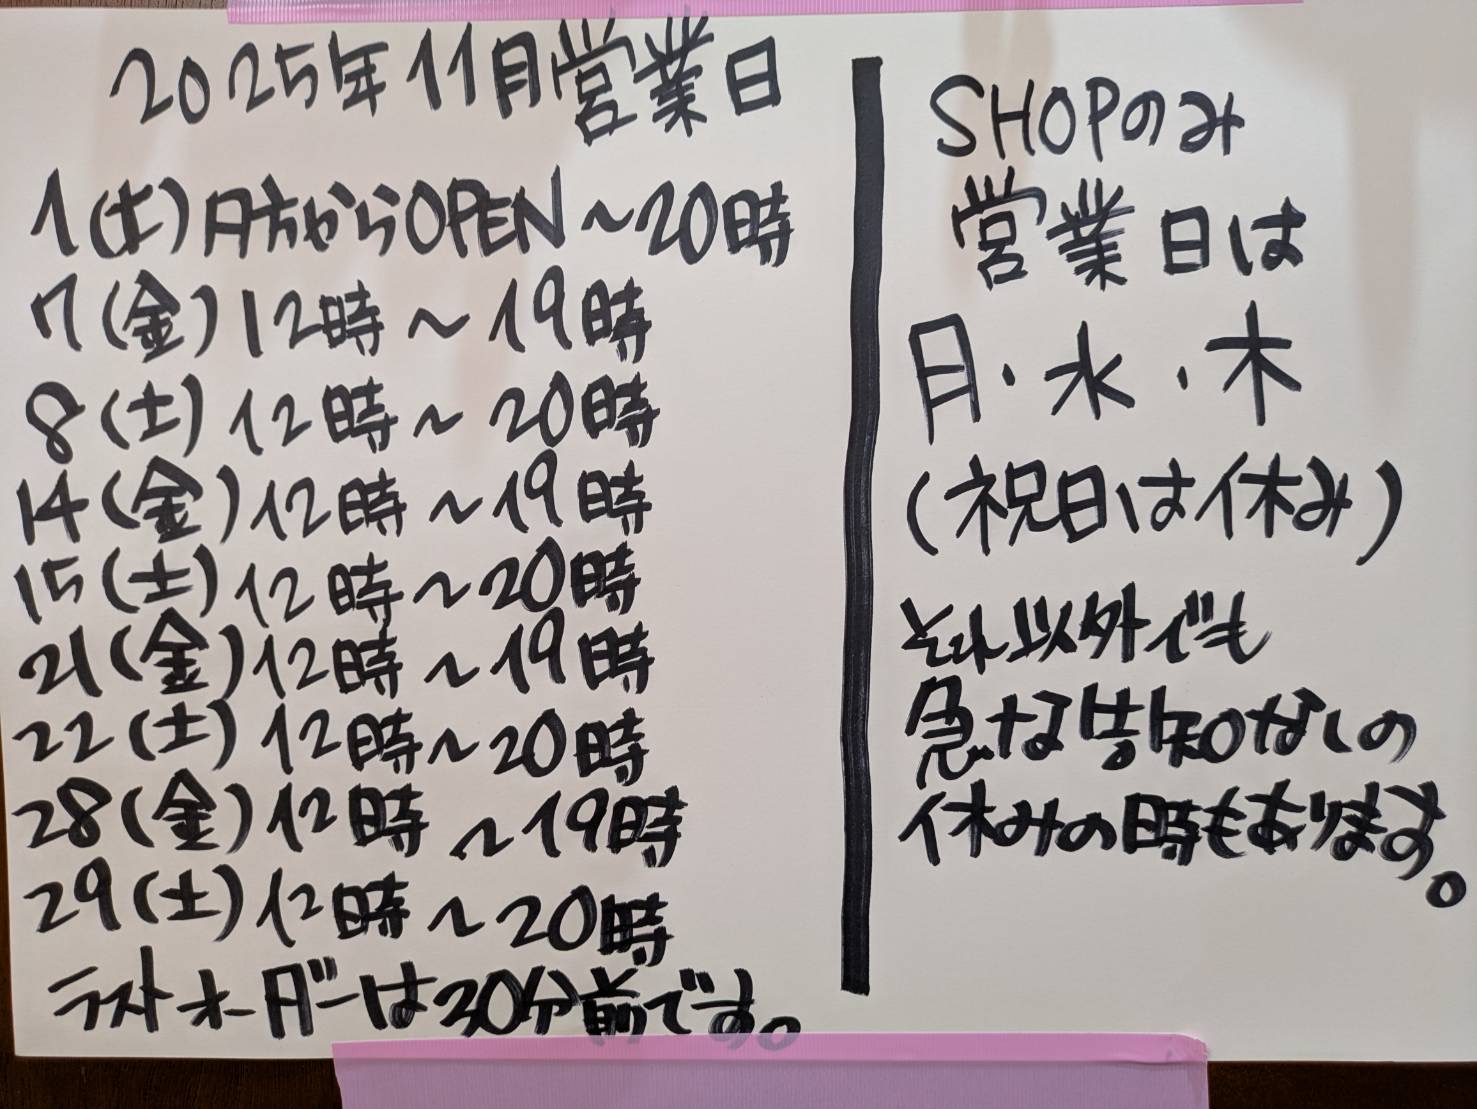 2025年11月営業日
1(土)夕方からOPEN～20時
7(金)12時～19時
8(土)12時～20時
14(金)12時～19時
15(土)12時～20時
21(金)12時～19時
22(土)12時～20時
28(金)12時～19時
29(土)12時～20時
ラストオーダーは30分前です。
SHOPのみ
営業日は
月・水・木
(祝日は休み)
それ以外でも
急な告知なしの
休みの時もあります。